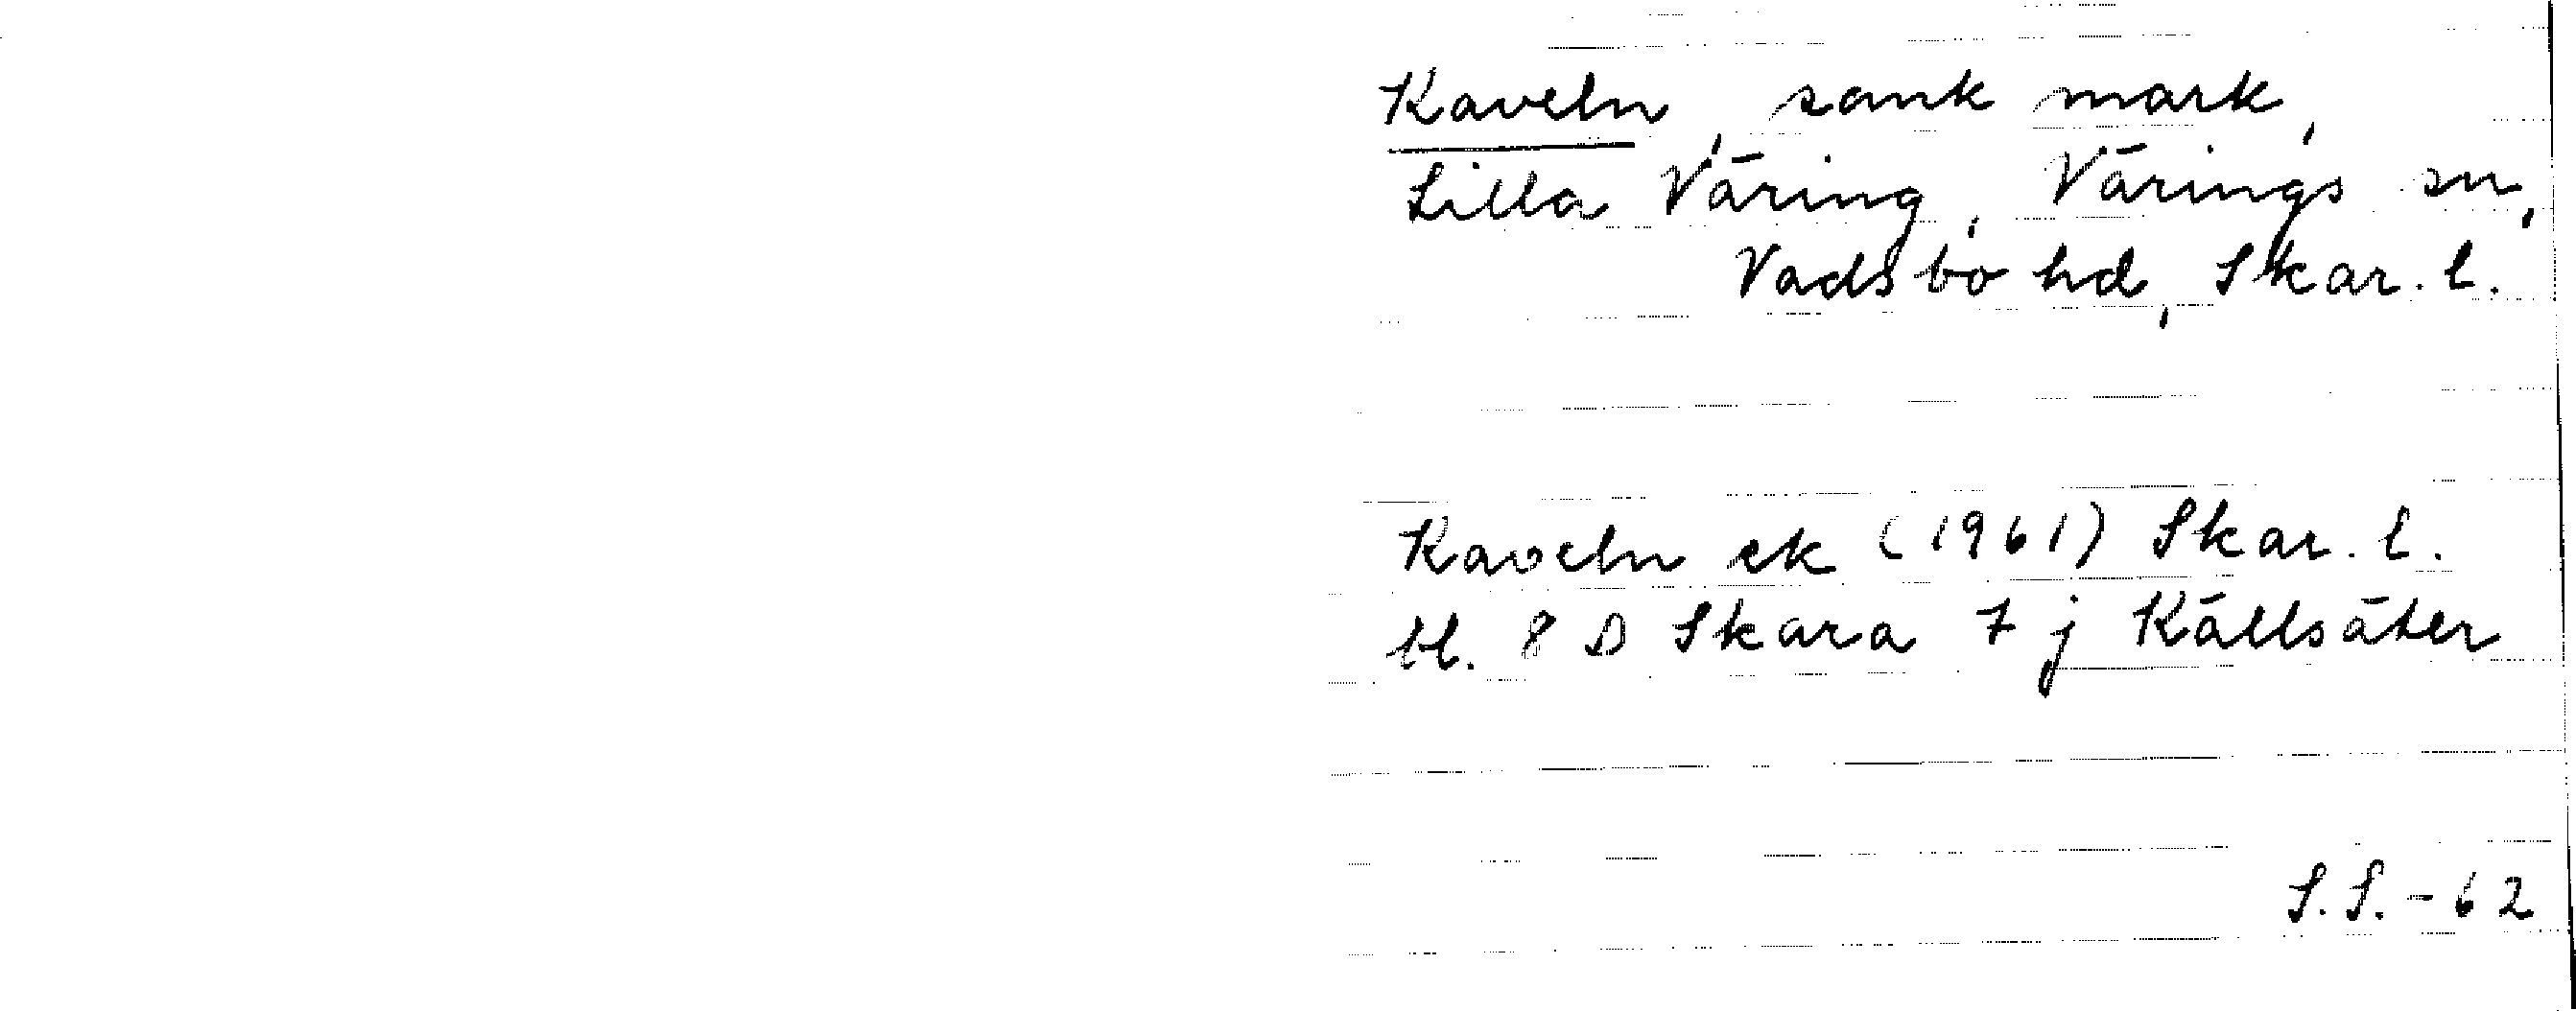 Kaveln, sank mark,
Lilla Väring, Värings sn,
Vadsbo hd, Skar. l.
Kaveln ek (1961) Skar. l.
bl. 8 D Skara 7 j Källsäter
S.S. -62